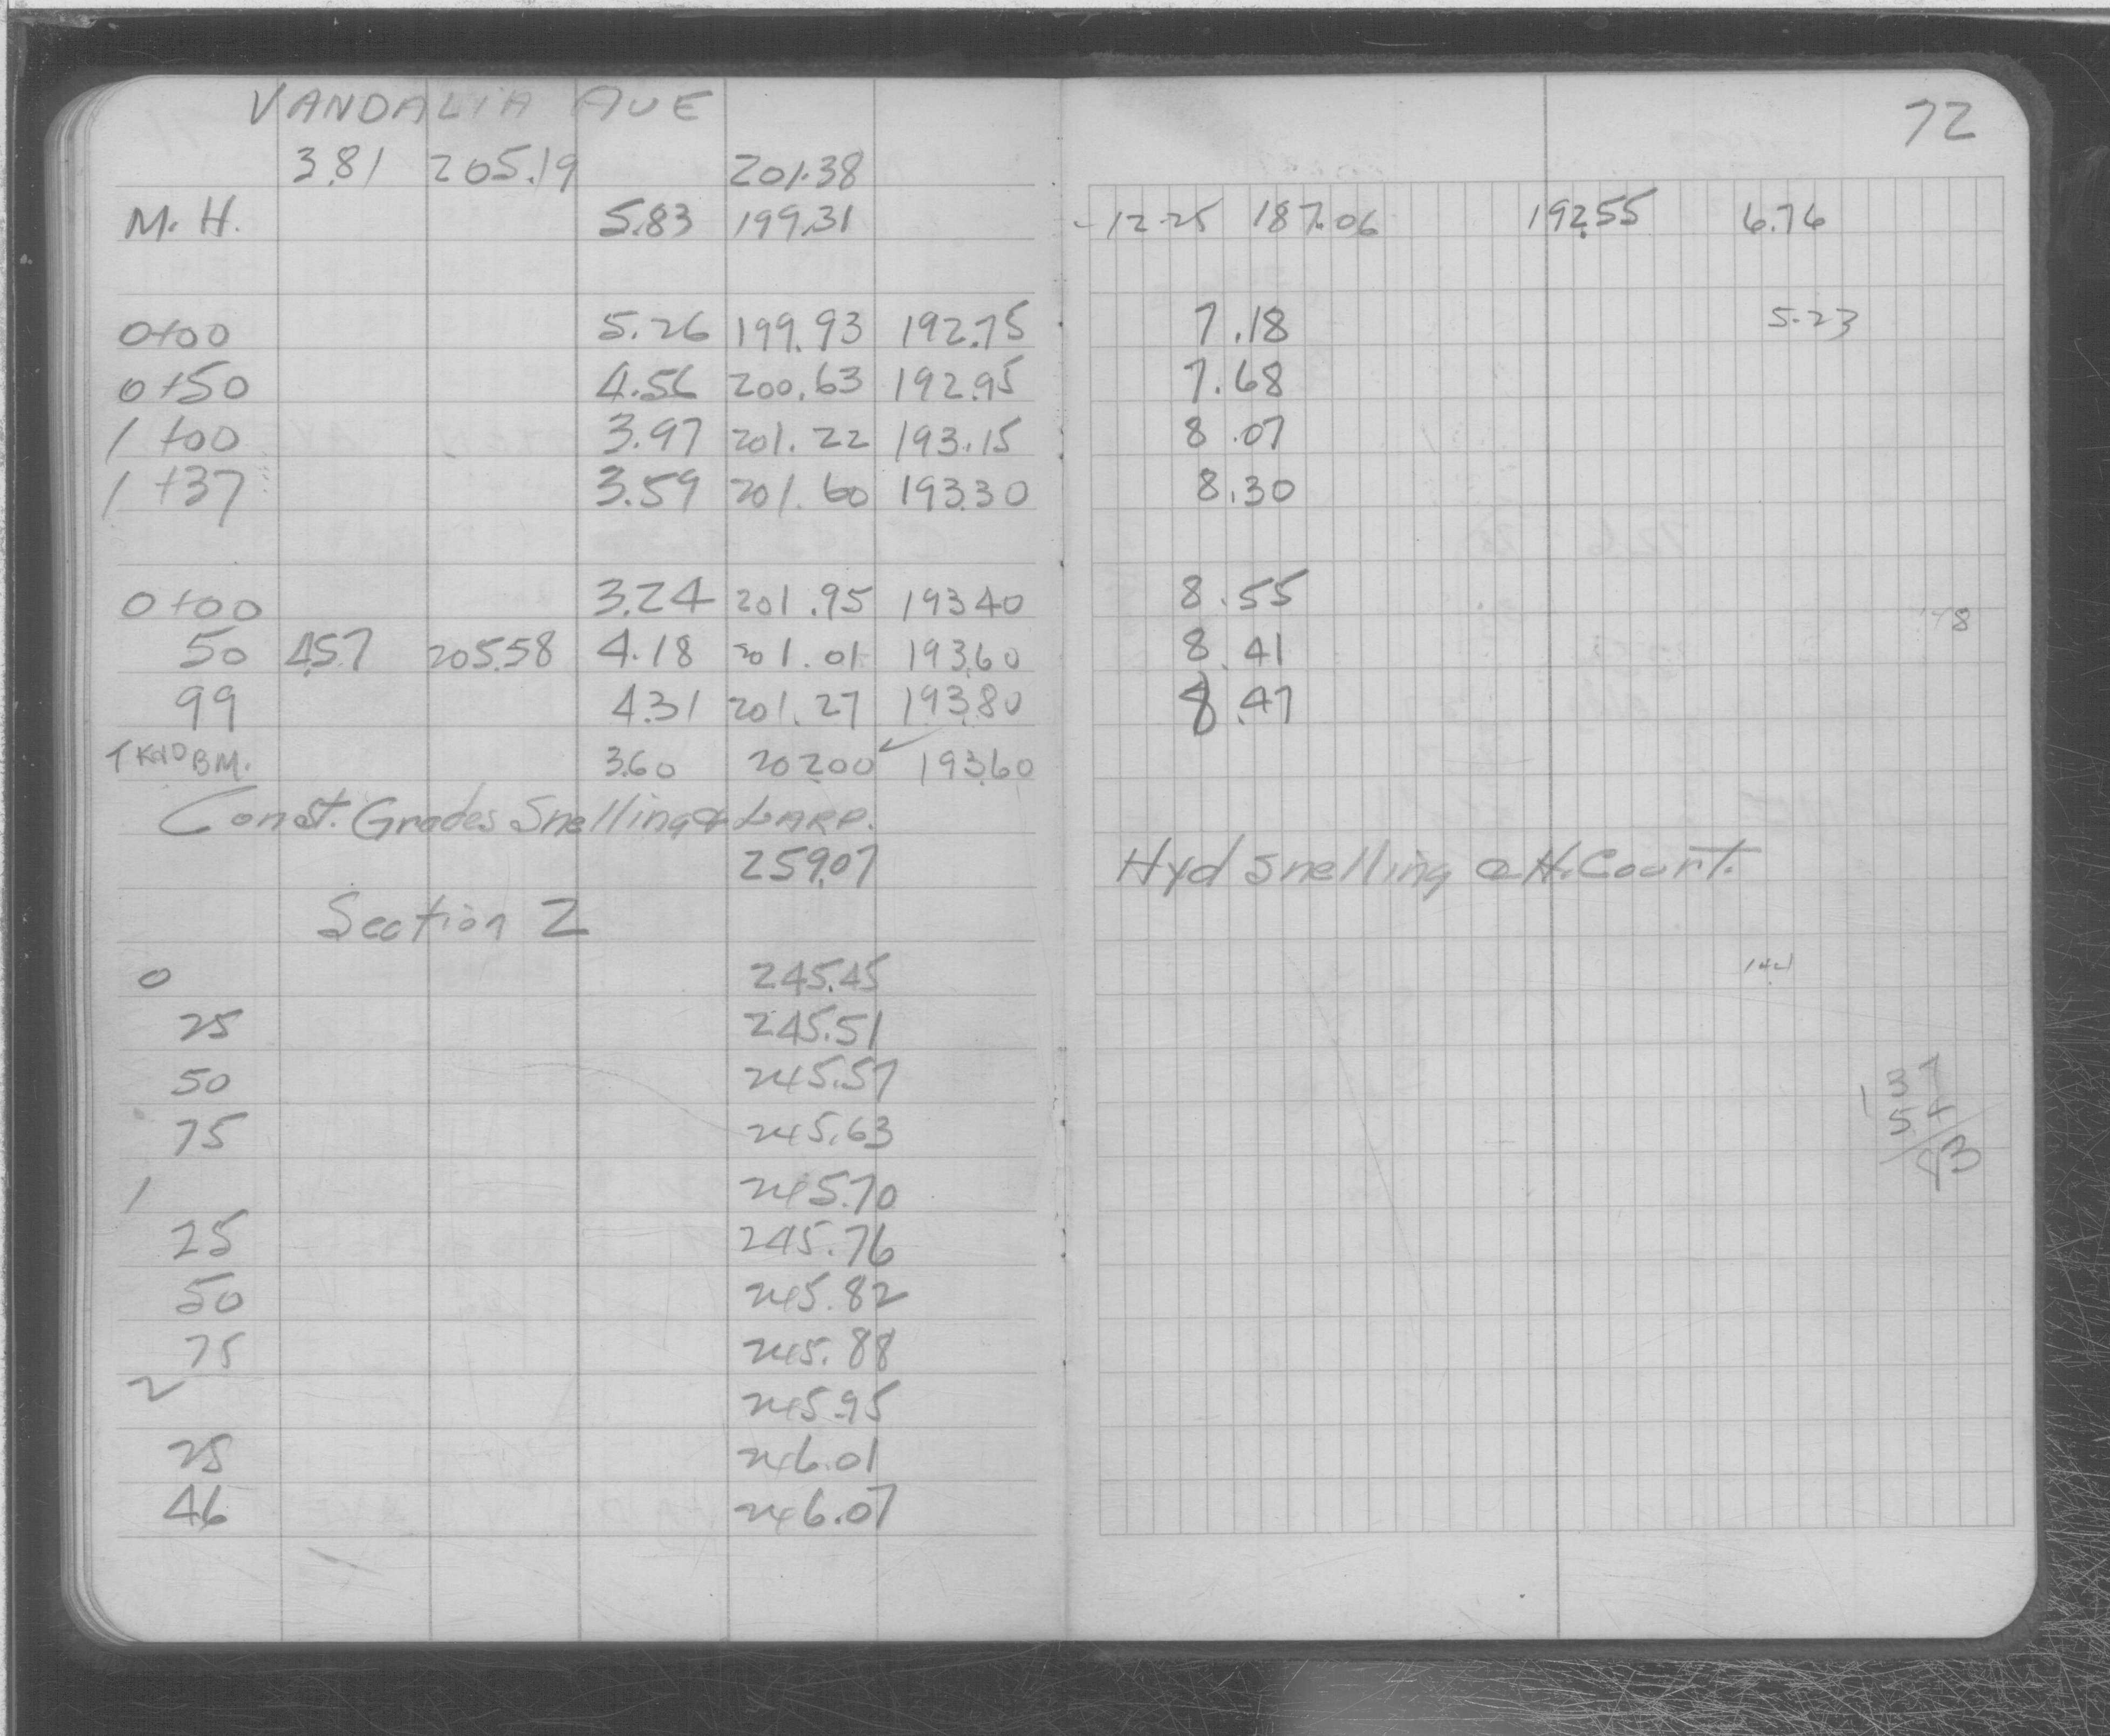 VANDALIA AVE
72
3.81 205.19 201.38
M. H. 5.83 199.31 -12.25 187.06 192.55 6.76
0+00 5.26 199.93 192.75 7.18 5.23
0+50 4.56 200.63 192.95 7.68
1+00 3.97 201.22 193.15 8.07
1+37 3.59 201.60 193.30 8.30
0+00 3.24 201.95 193.40 8.55
50 4.57 205.58 4.18 201.01 193.60 8.41
99 4.31 201.27 193.80 8.47
BM. 3.60 202.00 193.60
Const. Grades Snelling & LARP.
259.07 Hyd Snelling @ H. Court.
Section 2
0 245.45
25 245.51
50 245.57
75 245.63
1 245.70
25 245.76
50 245.82
75 245.88
2 245.95
25 246.01
46 246.07
137
54
83